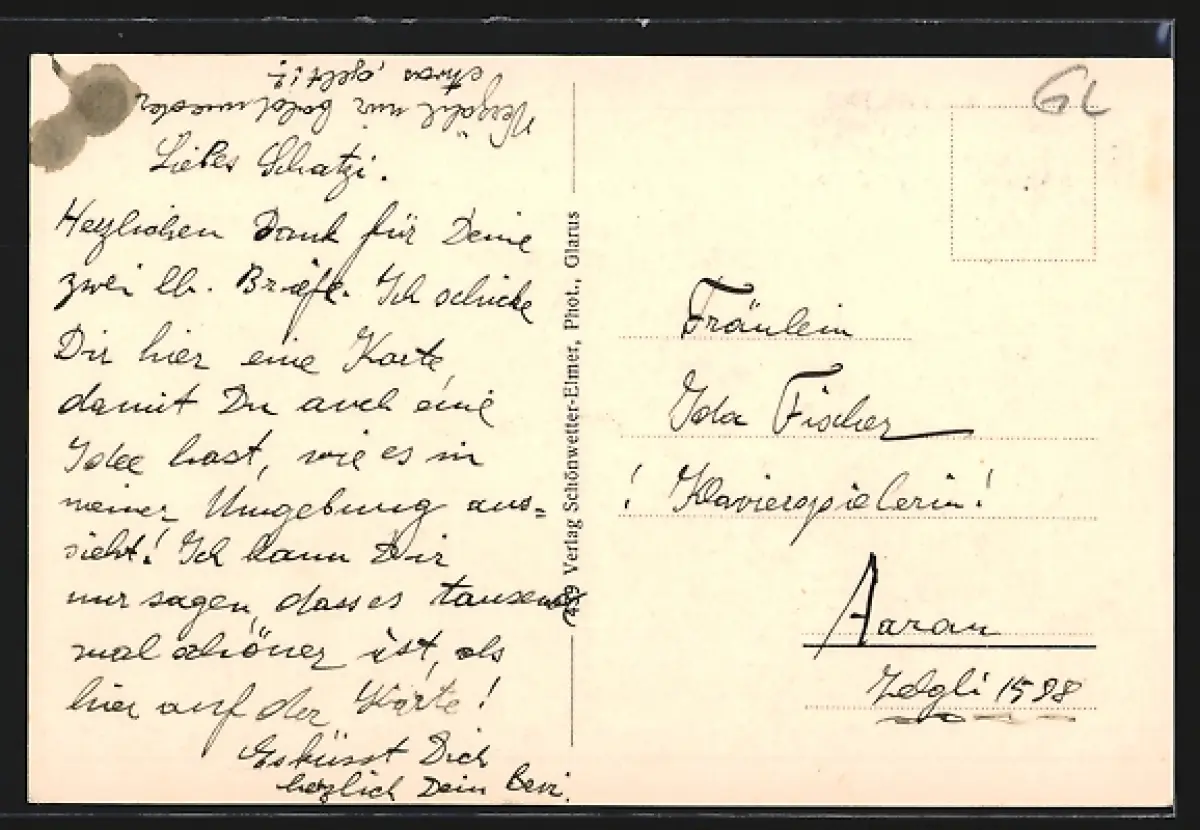 Verzähl mir bald wieder
etwas, gelt!?
Liebes Schatzi.
Herzlichen Dank für Deine
zwei lb. Briefe. Ich schicke
Dir hier eine Karte,
damit Du auch eine
Idee hast, wie es in
meiner Umgebung aus=
sieht! Ich kann Dir
nur sagen, dass es tausend
mal schöner ist, als
hier auf der Karte!
Es küsst Dich
herzlich Dein
Verlag Schönwetter-Elmer, Phot., Glarus
GL
Fräulein
Ida Fischer
! Klavierspielerin!
Aarau
Zelgli 1598